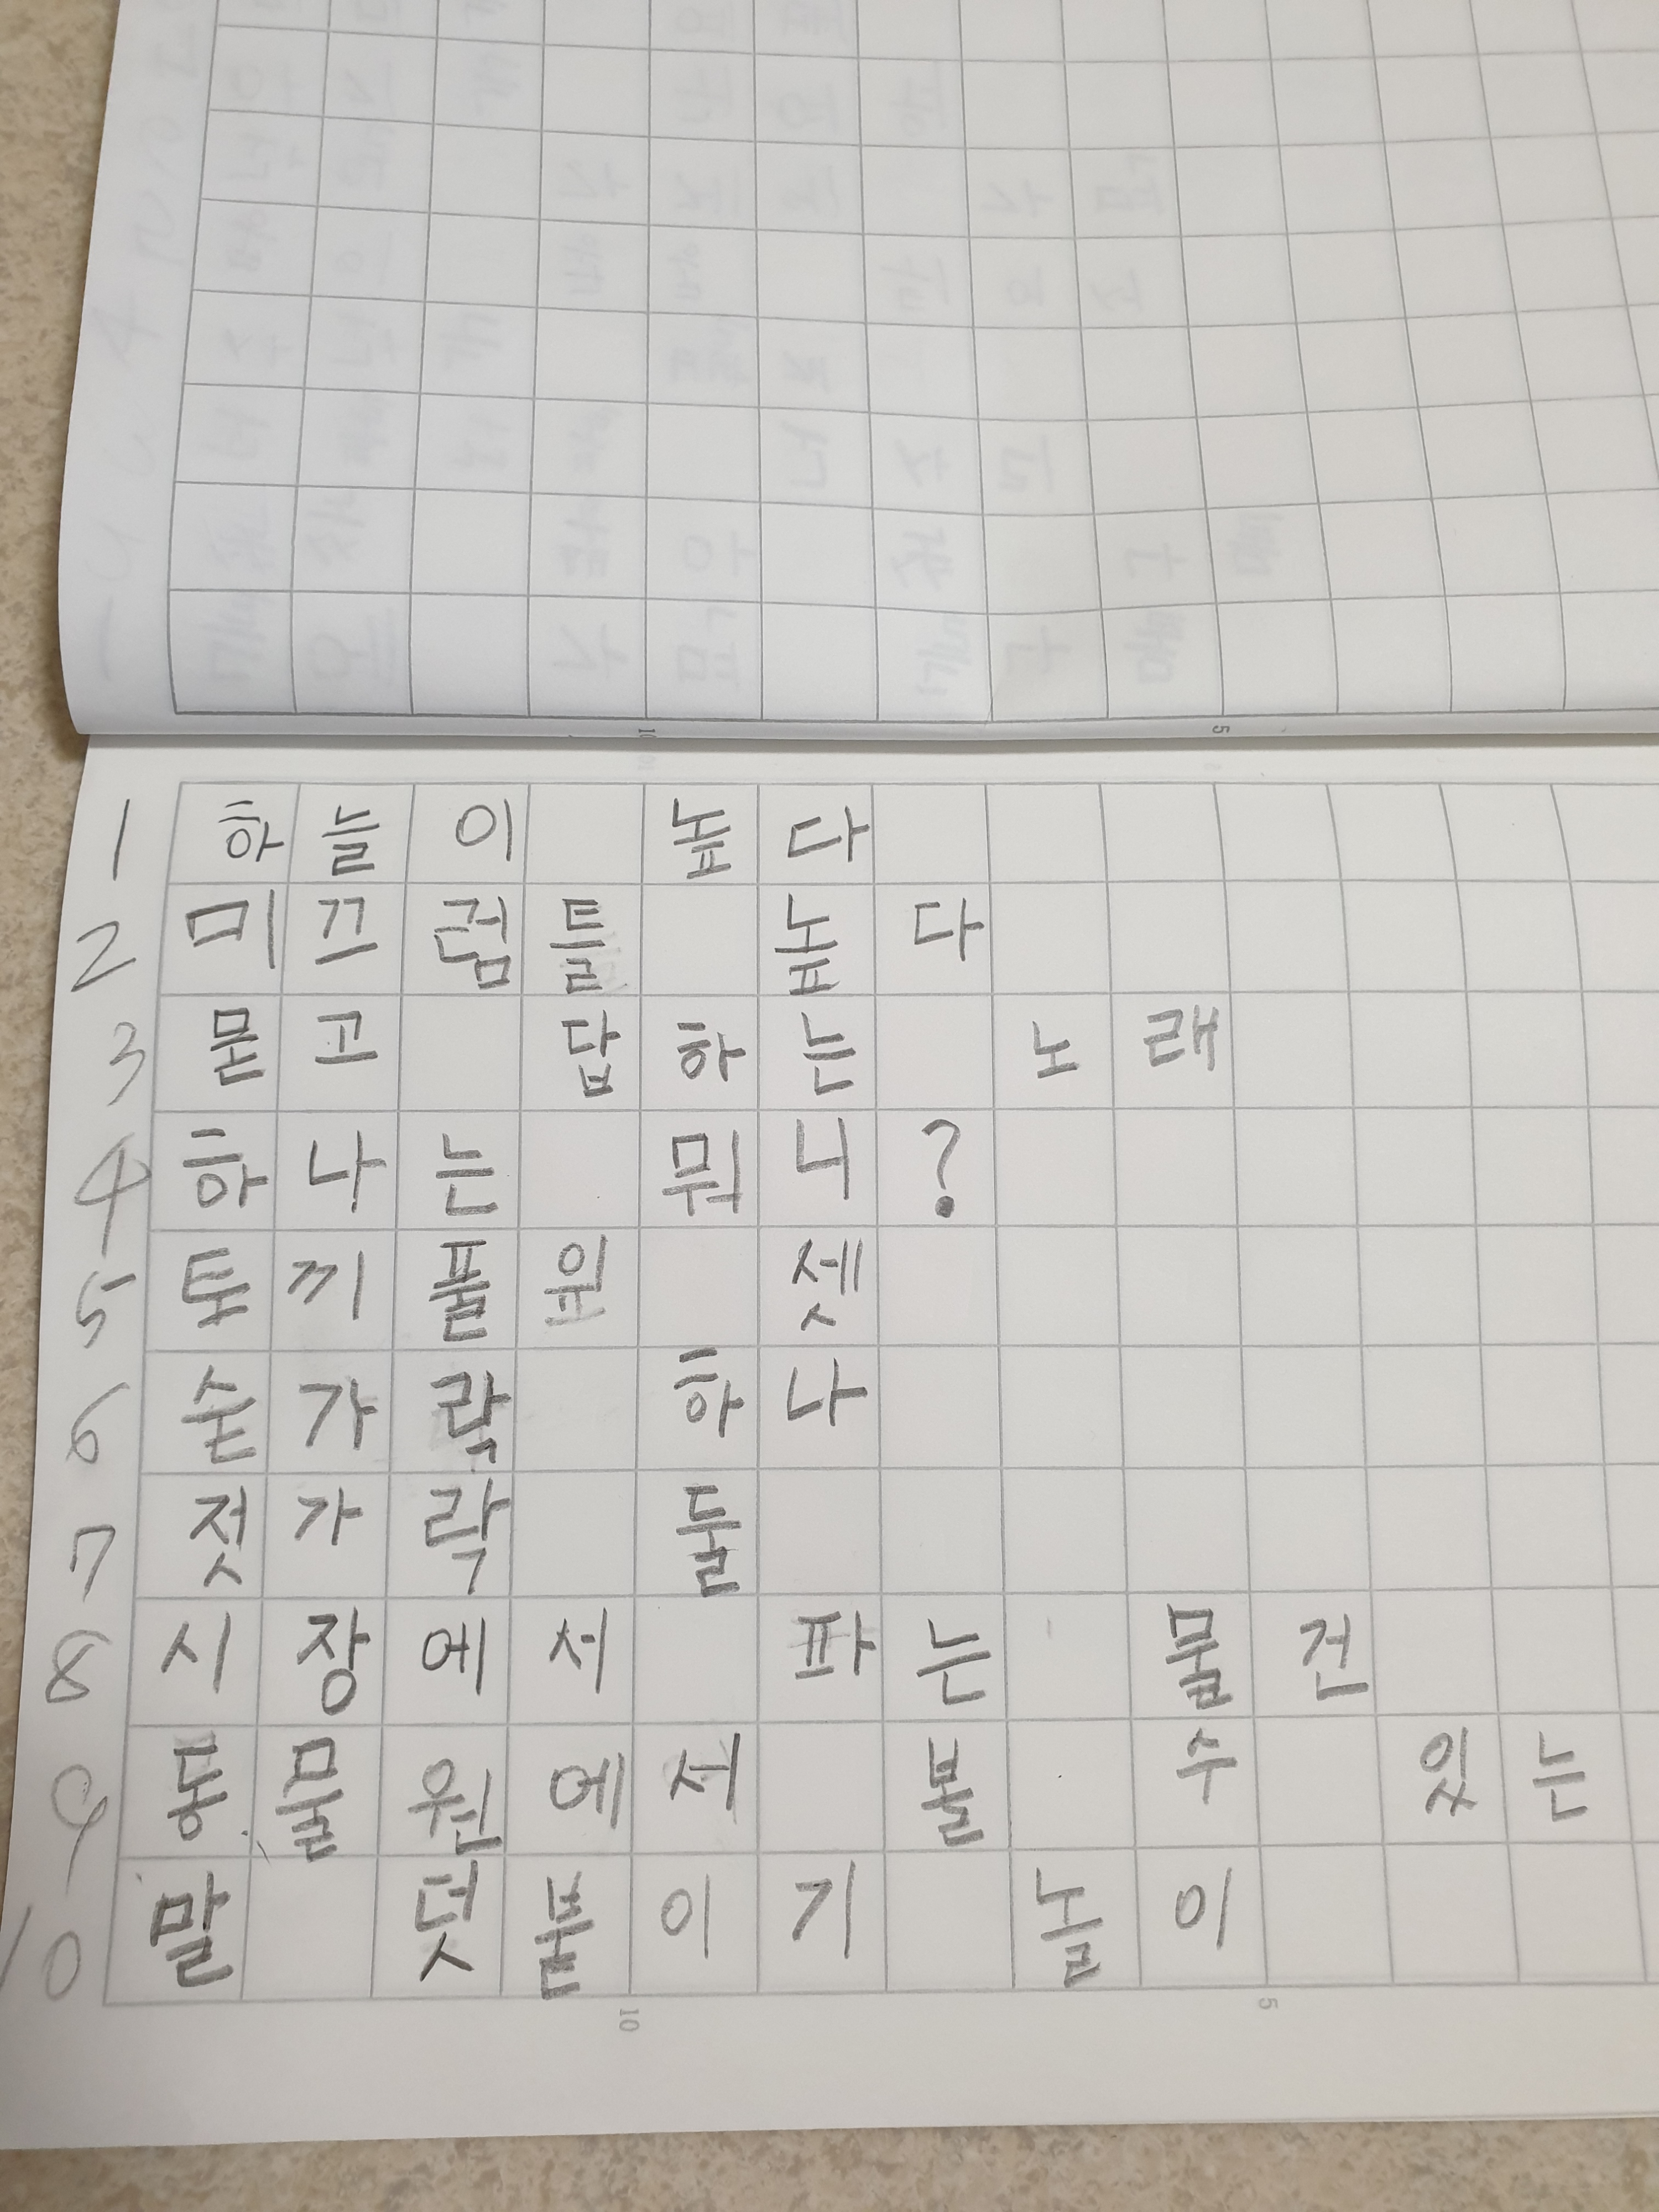 1 하늘이 높다
2 미끄럼틀 높다
3 묻고 답하는 노래
4 하나는 뭐니?
5 셋
6 숟가락 하나
7 젓가락 둘
8 시장에서 파는 물건
9 동물원에서 볼 수 있는
10 말 덧붙이기 놀이